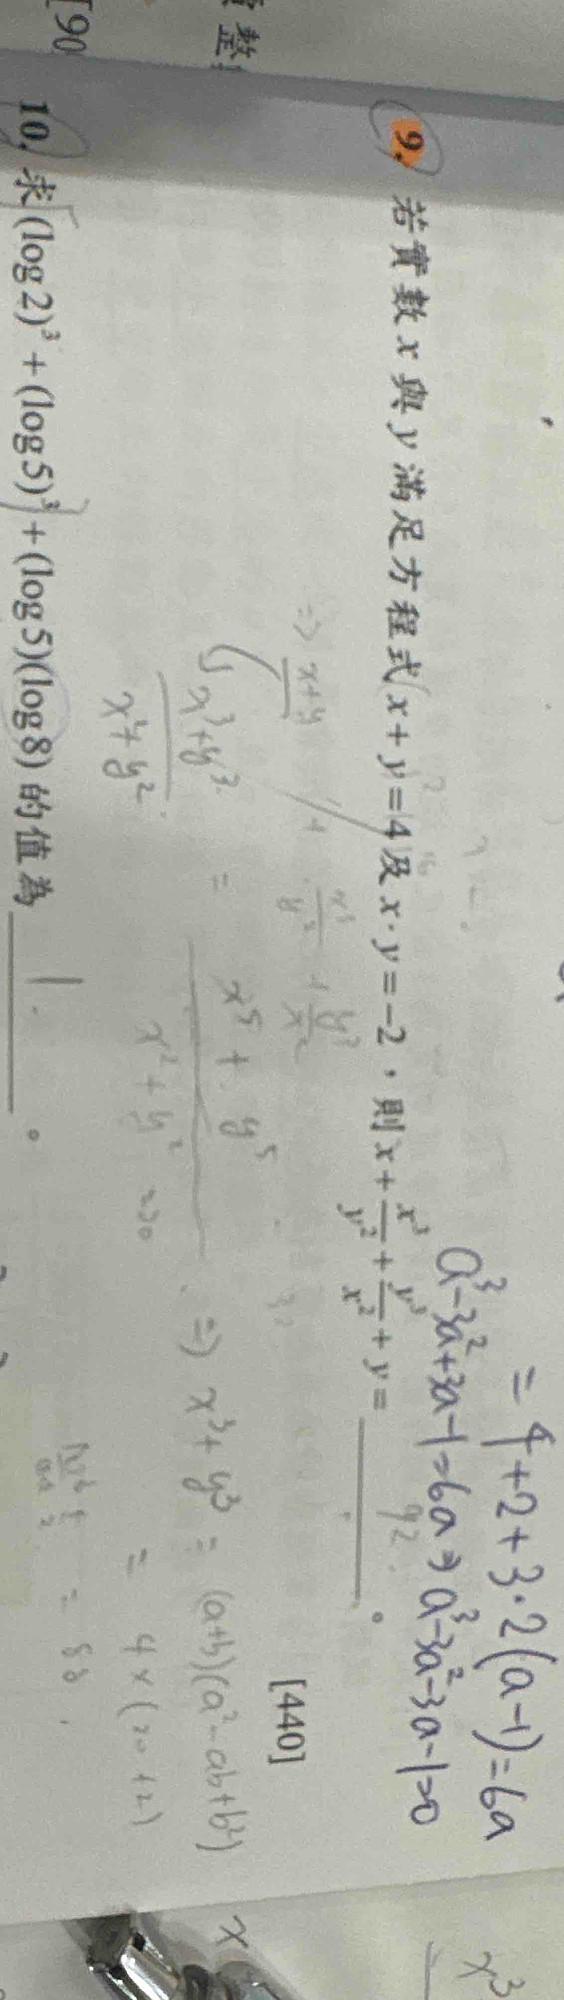 = 4+2+3·2(a-1)=6a
a³-3a²+3a-1=6a⇒a³-3a²-3a-1=0
9. 若實數 x 與 y 滿足方程式 x + y = 4 及 x · y = -2,則 x + x³/y² + y³/x² + y = ______。
[440]
92
⇒ x+y + x³/y² + y³/x²
x³+y³ / x²+y² = x⁵ + y⁵ / x²+y² ⇒ x³+y³ = (a+b)(a²-ab+b²)
= 4×(20+2)
= 88
10. 求 (log 2)³ + (log 5)³ + (log 5)(log 8) 的值為 1 。
[90
整
x
x³